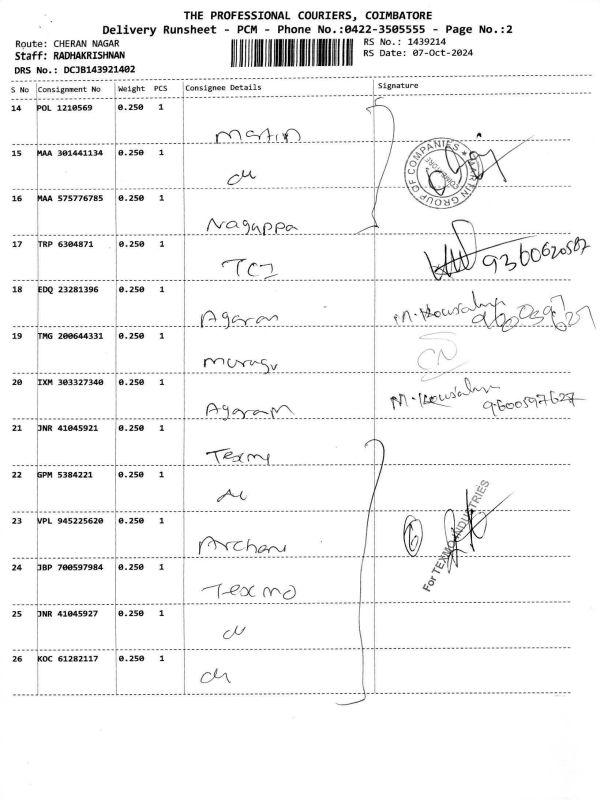 THE PROFESSIONAL COURIERS, COIMBATORE
Delivery Runsheet - PCM - Phone No.:0422-3505555 - Page No.:2
Route: CHERAN NAGAR
RS No.: 1439214
Staff: RADHAKRISHNAN
RS Date: 07-Oct-2024
DRS No.: DCJB143921402
S No Consignment No Weight PCS Consignee Details Signature
14 POL 1210569 0.250 1
Martin
15 MAA 301441134 0.250 1
MARTIN GROUP OF COMPANIES * COIMBATORE
16 MAA 575776785 0.250 1
Nagappa
17 TRP 6304871 0.250 1
TCI 9360620587
18 EDQ 23281396 0.250 1
Agaram M. Kousalya
19 TMG 200644331 0.250 1
Murugu
20 IXM 303327340 0.250 1
Agaram M. Kousalya 9600597627
21 JNR 41045921 0.250 1
Texmo
22 GPM 5384221 0.250 1
23 VPL 945225620 0.250 1
Archana
For TEXMO INDUSTRIES
24 JBP 700597984 0.250 1
Texmo
25 JNR 41045927 0.250 1
26 KOC 61282117 0.250 1